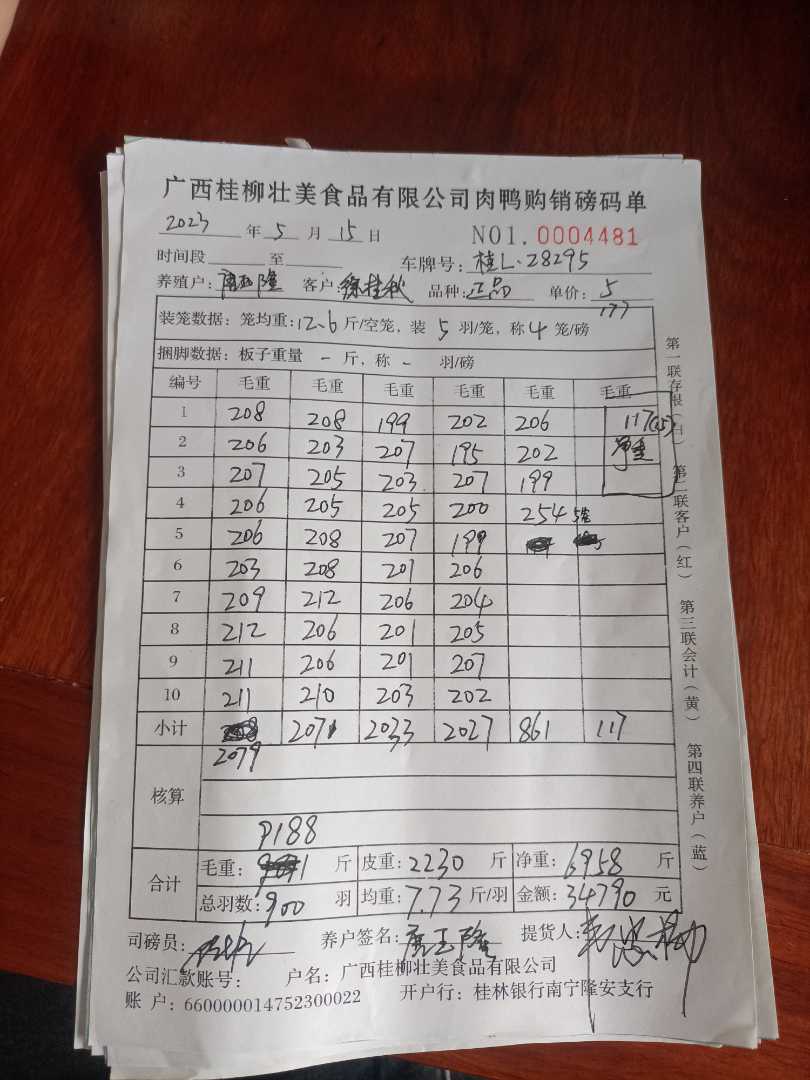 广西桂柳壮美食品有限公司肉鸭购销磅码单
2023 年 5 月 15 日 NO1. 0004481
时间段 至 车牌号: 桂L·28295
养殖户: 隆 客户: 徐桂秋 品种: 正品 单价: 5
装笼数据: 笼均重: 12.6 斤/空笼, 装 5 羽/笼, 称 4 笼/磅 177
捆脚数据: 板子重量 - 斤, 称 - 羽/磅
编号 毛重 毛重 毛重 毛重 毛重 毛重
1 208 208 199 202 206 117(15)
2 206 203 207 195 202 净重
3 207 205 203 207 199
4 206 205 205 200 254 5笼
5 206 208 207 199
6 203 208 201 206
7 209 212 206 204
8 212 206 201 205
9 211 206 201 207
10 211 210 203 202
小计 2071 2033 2027 861 117
2079
核算
9188
合计 毛重: 斤 皮重: 2230 斤 净重: 6958 斤
总羽数: 900 羽 均重: 7.73 斤/羽 金额: 34790 元
司磅员: 养户签名: 玉隆 提货人:
公司汇款账号: 户名: 广西桂柳壮美食品有限公司
账 户: 660000014752300022 开户行: 桂林银行南宁隆安支行
第一联存根(白) 第二联客户(红) 第三联会计(黄) 第四联养户(蓝)